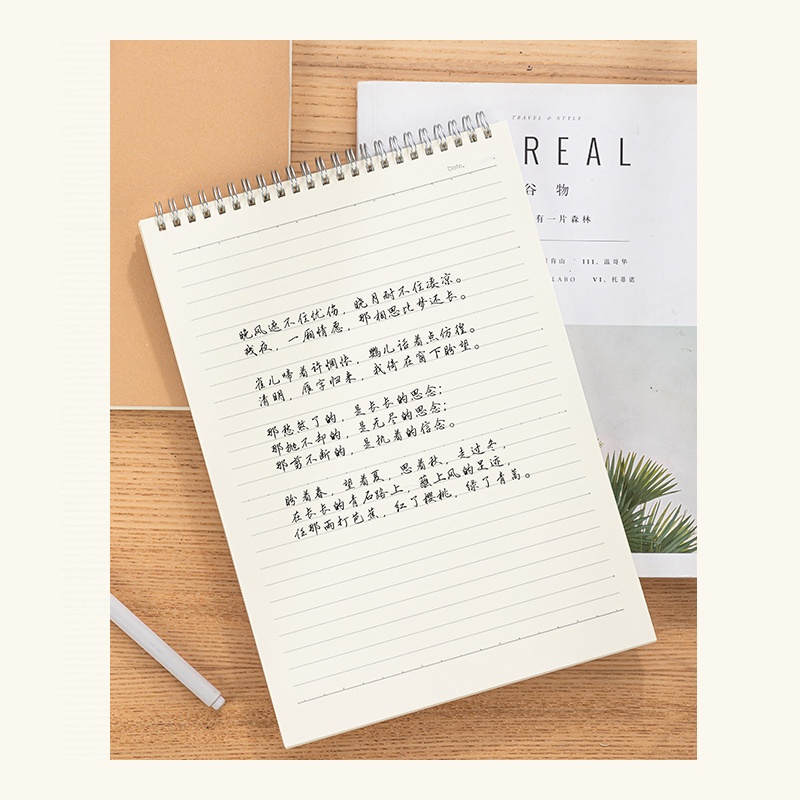 TRAVEL & STYLE
REAL
谷 物
有一片森林
III. 温哥华
LABO VI. 托蒂诺
Date.
晚风遮不住忧伤，晓月耐不住凄凉。
残夜，一厢情愿，那相思比梦还长。
雀儿啼着许惆怅，鹦儿话着点彷徨。
清明，雁字归来，我倚在窗下盼望。
那愁煞了的，是长长的思念；
那抛不却的，是无尽的思念；
那剪不断的，是执着的信念。
盼着春，望着夏，思着秋，走过冬，
在长长的青石路上，蘸上风的足迹，
任那雨打芭蕉，红了樱桃，绿了青蒿。